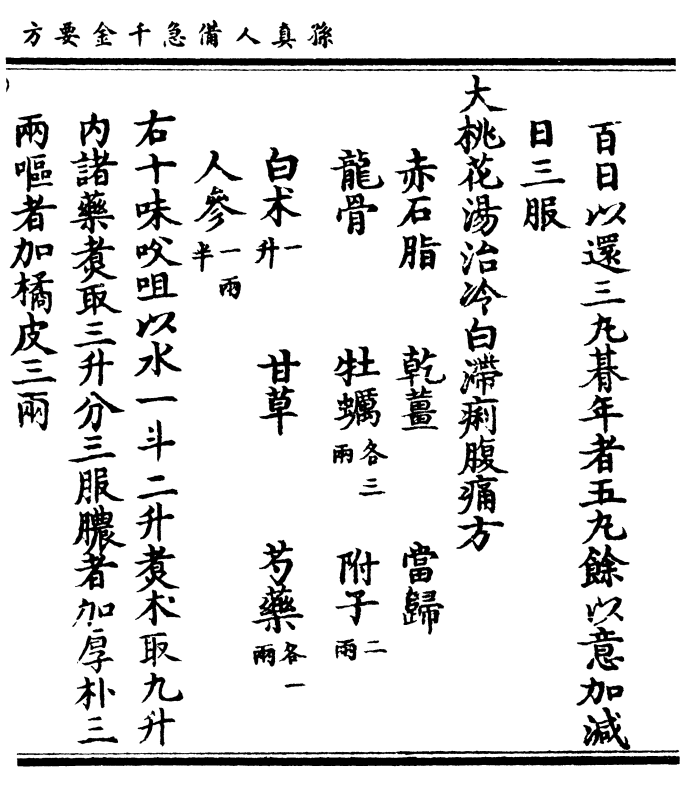 孫真人備急千金要方
百日以還三丸朞年者五丸餘以意加減
日三服
大桃花湯治冷白滯痢腹痛方
赤石脂 乾薑 當歸
龍骨 牡蠣各三兩 附子二兩
白术一升 甘草 芍藥各一兩
人參一兩半
右十味㕮咀以水一斗二升煑术取九升
内諸藥煑取三升分三服膿者加厚朴三
兩嘔者加橘皮三兩